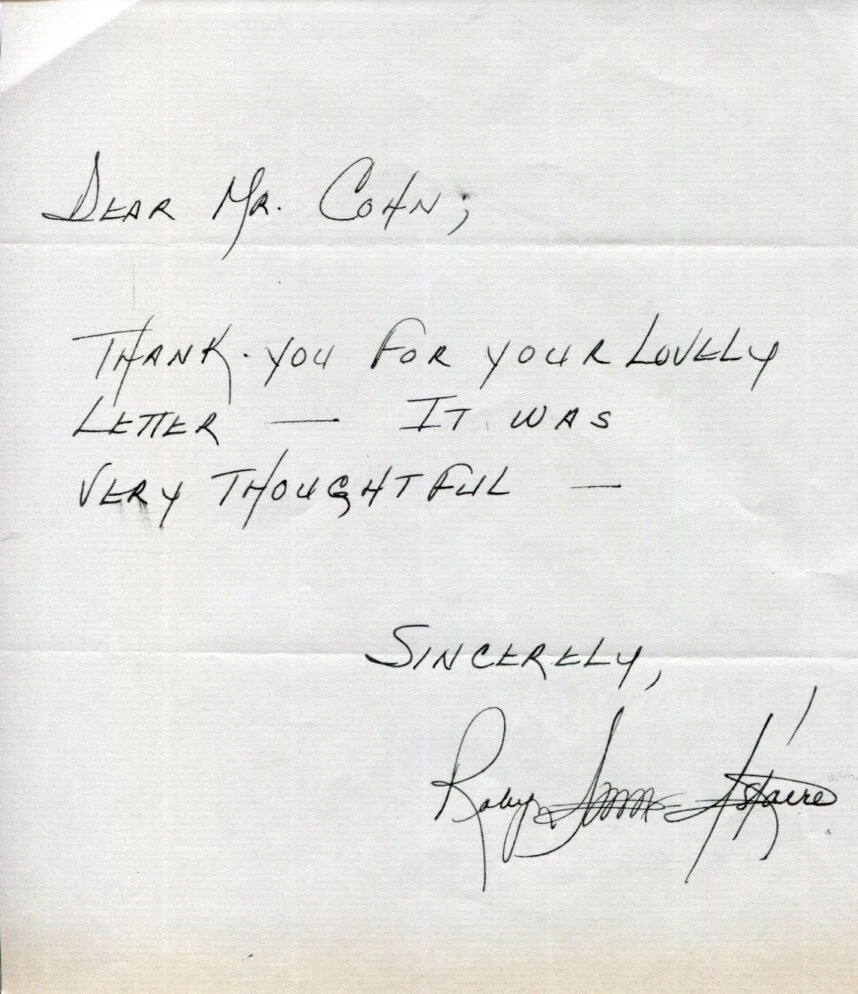 Dear Mr. Cohn;
Thank. you for your lovely
letter — It was
very thoughtful —
Sincerely,
Robyn Astaire